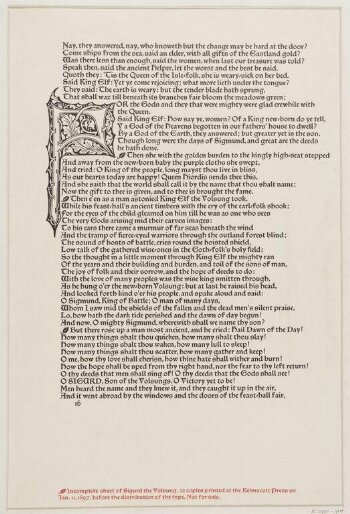 Nay, they answered, nay, who knoweth but the change may be hard at the door?
Come ships from the sea, said an elder, with all gifts of the Eastland gold?
Was there less than enough, said the women, when last our treasure was told?
Speak then, said the ancient helper, let the worst and the best be said.
Quoth they: 'Tis the Queen of the Isle-folk, she is weary-sick on her bed.
Said King Elf: Yet ye come rejoicing; what more lieth under the tongue?
They said: The earth is weary: but the tender blade hath sprung,
That shall wax till beneath its branches fair bloom the meadows green;
FOR the Gods and they that were mighty were glad erewhile with
the Queen.
Said King Elf: How say ye, women? Of a King new-born do ye tell,
By a God of the Heavens begotten in our fathers' house to dwell?
By a God of the Earth, they answered; but greater yet is the son,
Though long were the days of Sigmund, and great are the deeds
he hath done.
Then she with the golden burden to the kingly high-seat stepped
And away from the new-born baby the purple cloths she swept,
And cried: O King of the people, long mayst thou live in bliss,
As our hearts today are happy! Queen Hiordis sends thee this,
And she saith that the world shall call it by the name that thou shalt name;
Now the gift to thee is given, and to thee is brought the fame.
Then e'en as a man astonied King Elf the Volsung took,
While his feast-hall's ancient timbers with the cry of the earl-folk shook;
For the eyes of the child gleamed on him till he was as one who sees
The very Gods arising mid their carven images:
To his ears there came a murmur of far seas beneath the wind
And the tramp of fierce-eyed warriors through the outland forest blind;
The sound of hosts of battle, cries round the hoisted shield,
Low talk of the gathered wise-ones in the Goth-folk's holy field:
So the thought in a little moment through King Elf the mighty ran
Of the years and their building and burden, and toil of the sons of man,
The joy of folk and their sorrow, and the hope of deeds to do:
With the love of many peoples was the wise king smitten through,
As he hung o'er the new-born Volsung: but at last he raised his head,
And looked forth kind o'er his people, and spake aloud and said:
O Sigmund, King of Battle; O man of many days,
Whom I saw mid the shields of the fallen and the dead men's silent praise,
Lo, how hath the dark tide perished and the dawn of day begun!
And now, O mighty Sigmund, wherewith shall we name thy son?
But there rose up a man most ancient, and he cried: Hail Dawn of the Day!
How many things shalt thou quicken, how many shalt thou slay!
How many things shalt thou waken, how many lull to sleep!
How many things shalt thou scatter, how many gather and keep!
O me, how thy love shall cherish, how thine hate shall wither and burn!
How the hope shall be sped from thy right hand, nor the fear to thy left return!
O thy deeds that men shall sing of! O thy deeds that the Gods shall see!
O SIGURD, Son of the Volsungs, O Victory yet to be!
Men heard the name and they knew it, and they caught it up in the air,
And it went abroad by the windows and the doors of the feast-hall fair,
16
Incomplete sheet of Sigurd the Volsung. 32 copies printed at the Kelmscott Press on
Jan. 11, 1897, before the distribution of the type. Not for sale.